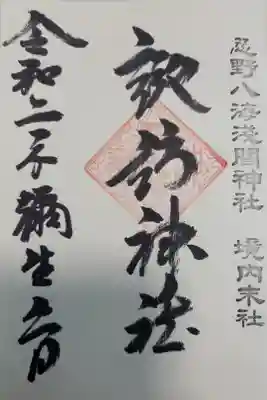 忍野八海浅間神社 境内末社
諏訪神社
令和二年彌生六日